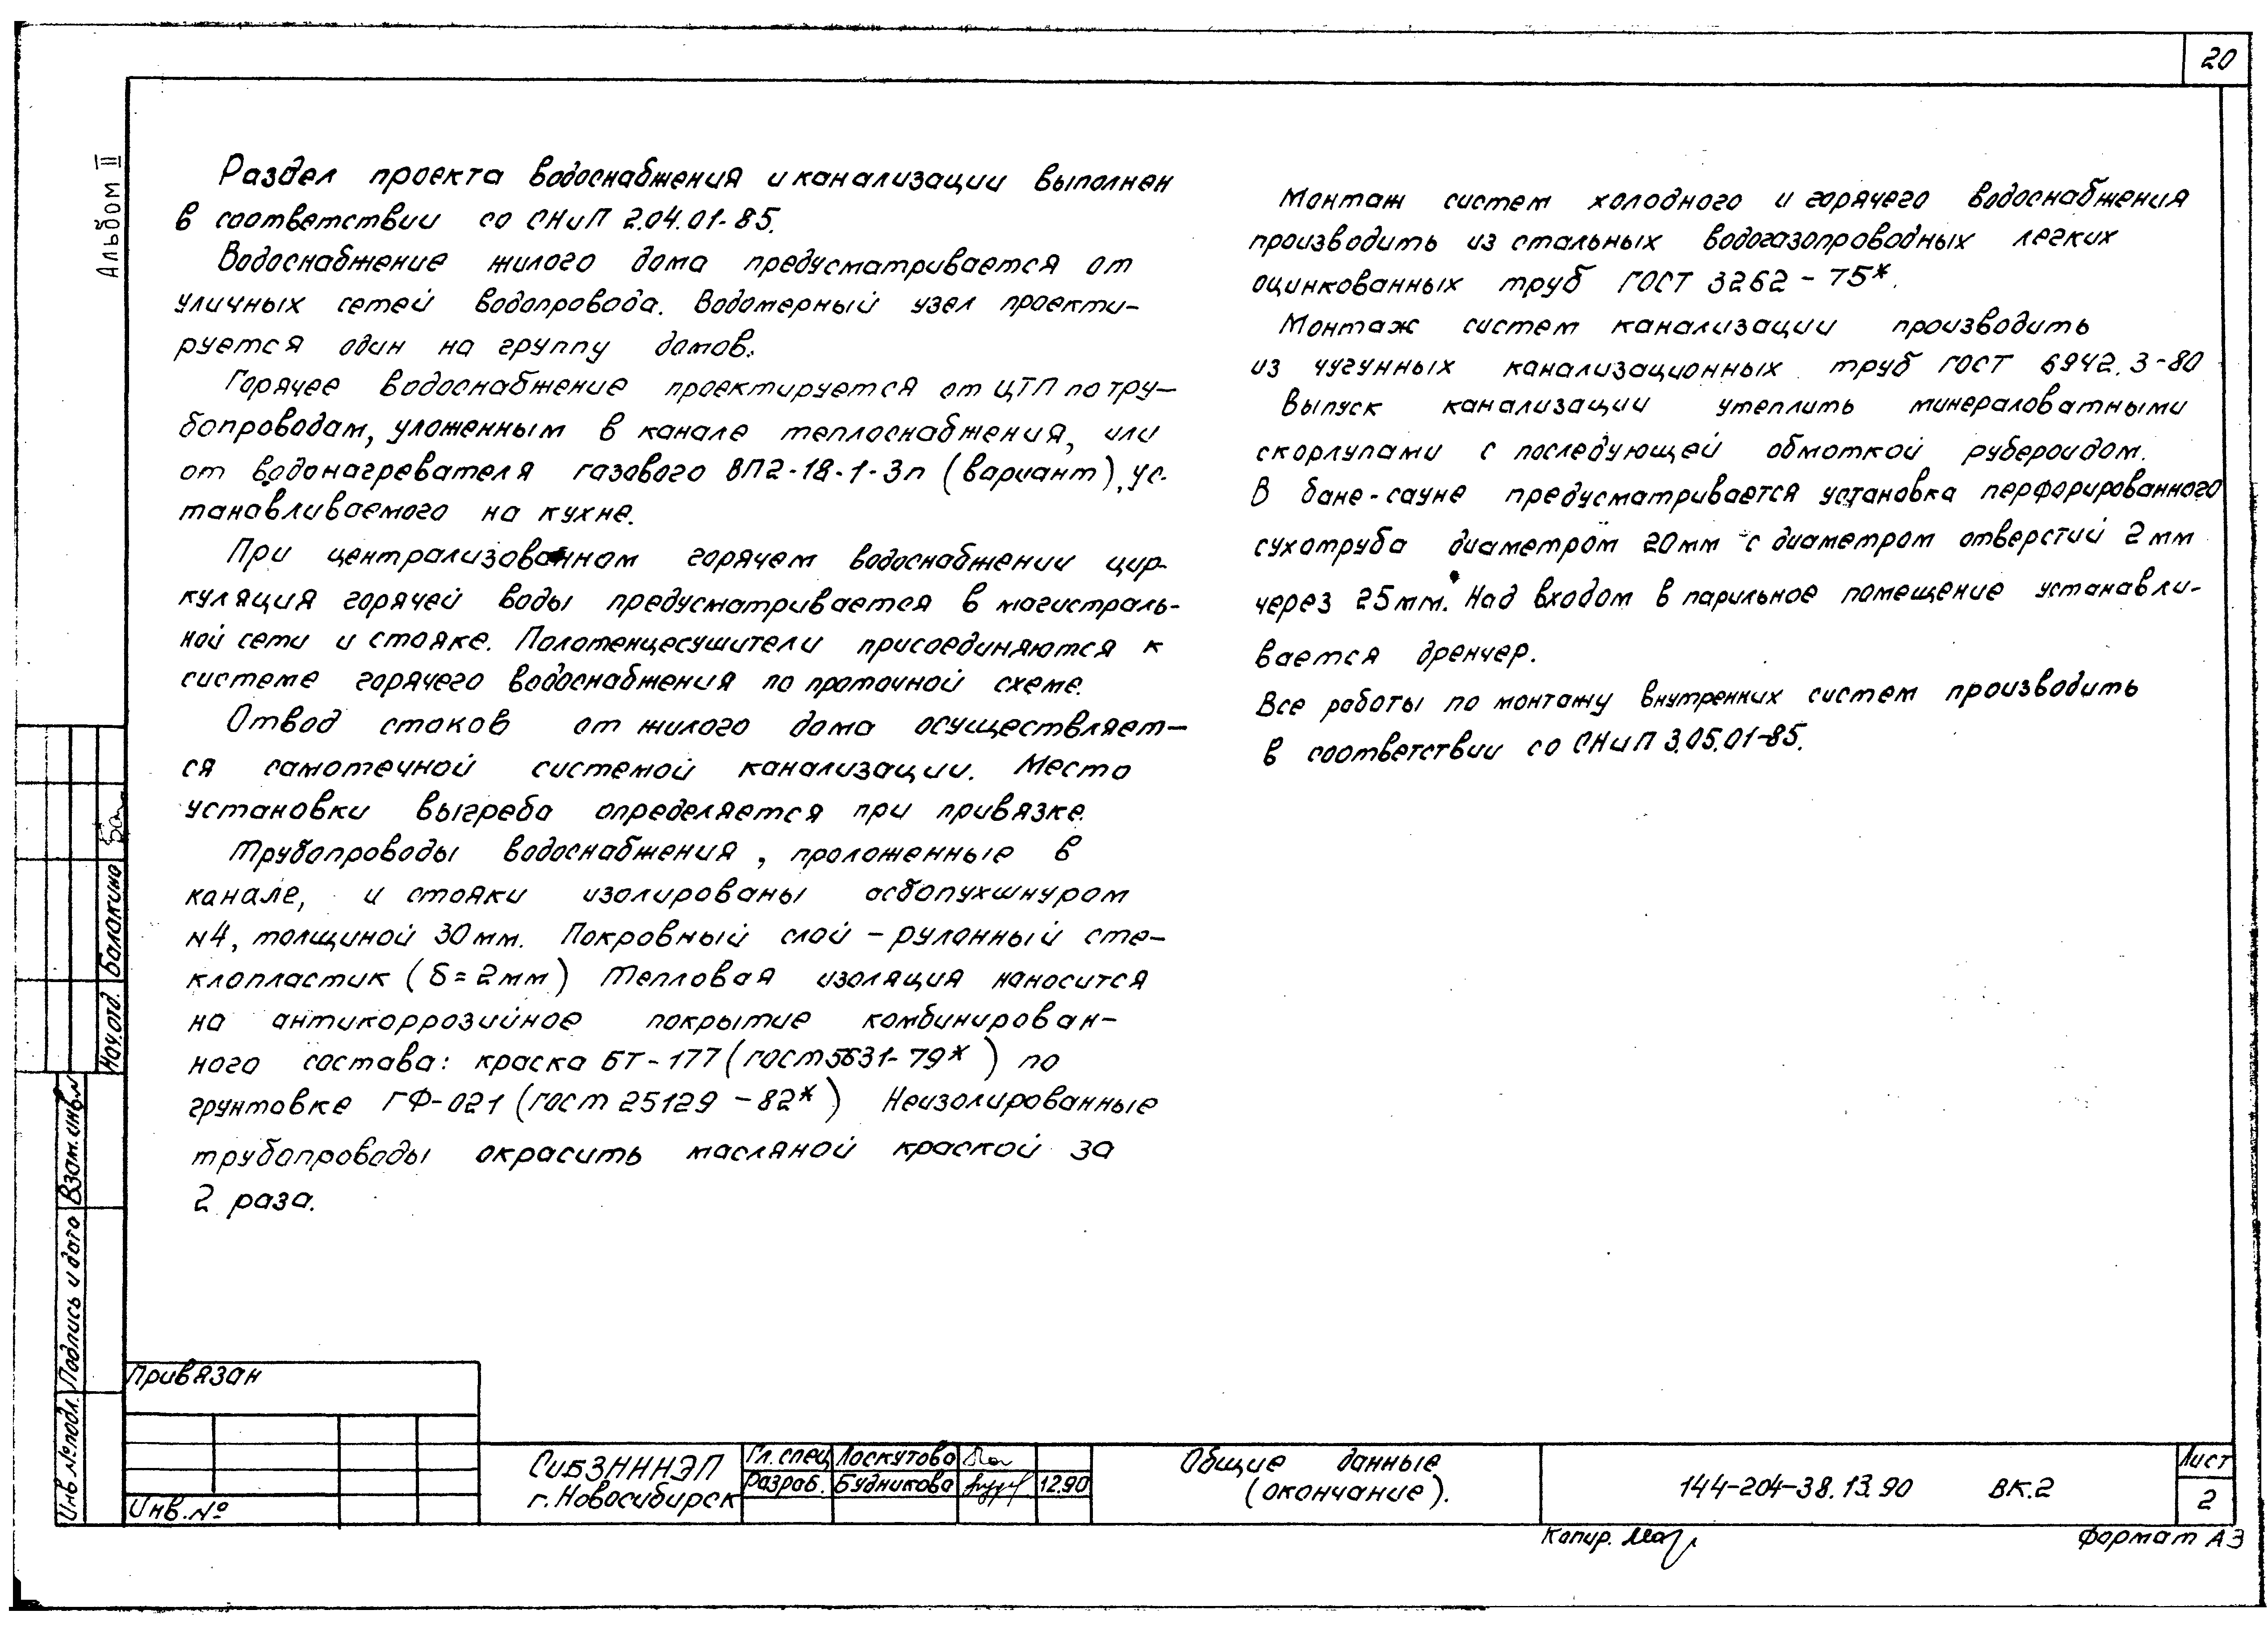 20
Альбом II
Раздел проекта водоснабжения и канализации выполнен
в соответствии со СНиП 2.04.01-85.
Водоснабжение жилого дома предусматривается от
уличных сетей водопровода. Водомерный узел проекти-
руется один на группу домов.
Горячее водоснабжение проектируется от ЦТП по тру-
бопроводам, уложенным в канале теплоснабжения, или
от водонагревателя газового ВП2-18-1-3п (вариант), ус-
танавливаемого на кухне.
При централизованном горячем водоснабжении цир-
куляция горячей воды предусматривается в магистраль-
ной сети и стояке. Полотенцесушители присоединяются к
системе горячего водоснабжения по проточной схеме.
Отвод стоков от жилого дома осуществляет-
ся самотечной системой канализации. Место
установки выгреба определяется при привязке.
Трубопроводы водоснабжения, проложенные в
канале, и стояки изолированы асбопухшнуром
N4, толщиной 30мм. Покровный слой - рулонный сте-
клопластик (δ=2мм) Тепловая изоляция наносится
на антикоррозийное покрытие комбинирован-
ного состава: краска БТ-177 (ГОСТ 5631-79*) по
грунтовке ГФ-021 (ГОСТ 25129-82*) Неизолированные
трубопроводы окрасить масляной краской за
2 раза.
Монтаж систем холодного и горячего водоснабжения
производить из стальных водогазопроводных легких
оцинкованных труб ГОСТ 3262-75*.
Монтаж систем канализации производить
из чугунных канализационных труб ГОСТ 6942.3-80
Выпуск канализации утеплить минераловатными
скорлупами с последующей обмоткой рубероидом.
В бане-сауне предусматривается установка перфорированного
сухотруба диаметром 20мм с диаметром отверстий 2мм
через 25мм. Над входом в парильное помещение устанавли-
вается дренчер.
Все работы по монтажу внутренних систем производить
в соответствии со СНиП 3.05.01-85.
Нач.отд. Балакина
Взам.инв.N
Подпись и дата
Инв №подл.
Привязан
Инв.№
СибЗНИИЭП
г.Новосибирск
Гл.спец Лоскутова
Разраб. Будникова 12.90
Общие данные
(окончание).
144-204-38.13.90 ВК.2
Лист
2
Копир.
Формат А3